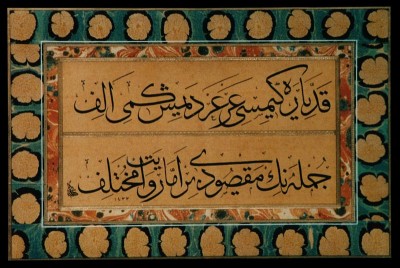 قد یاره کیمسی عرعر دیمش کمی الف
جمله نك مقصودی بر اما روایت مختلف